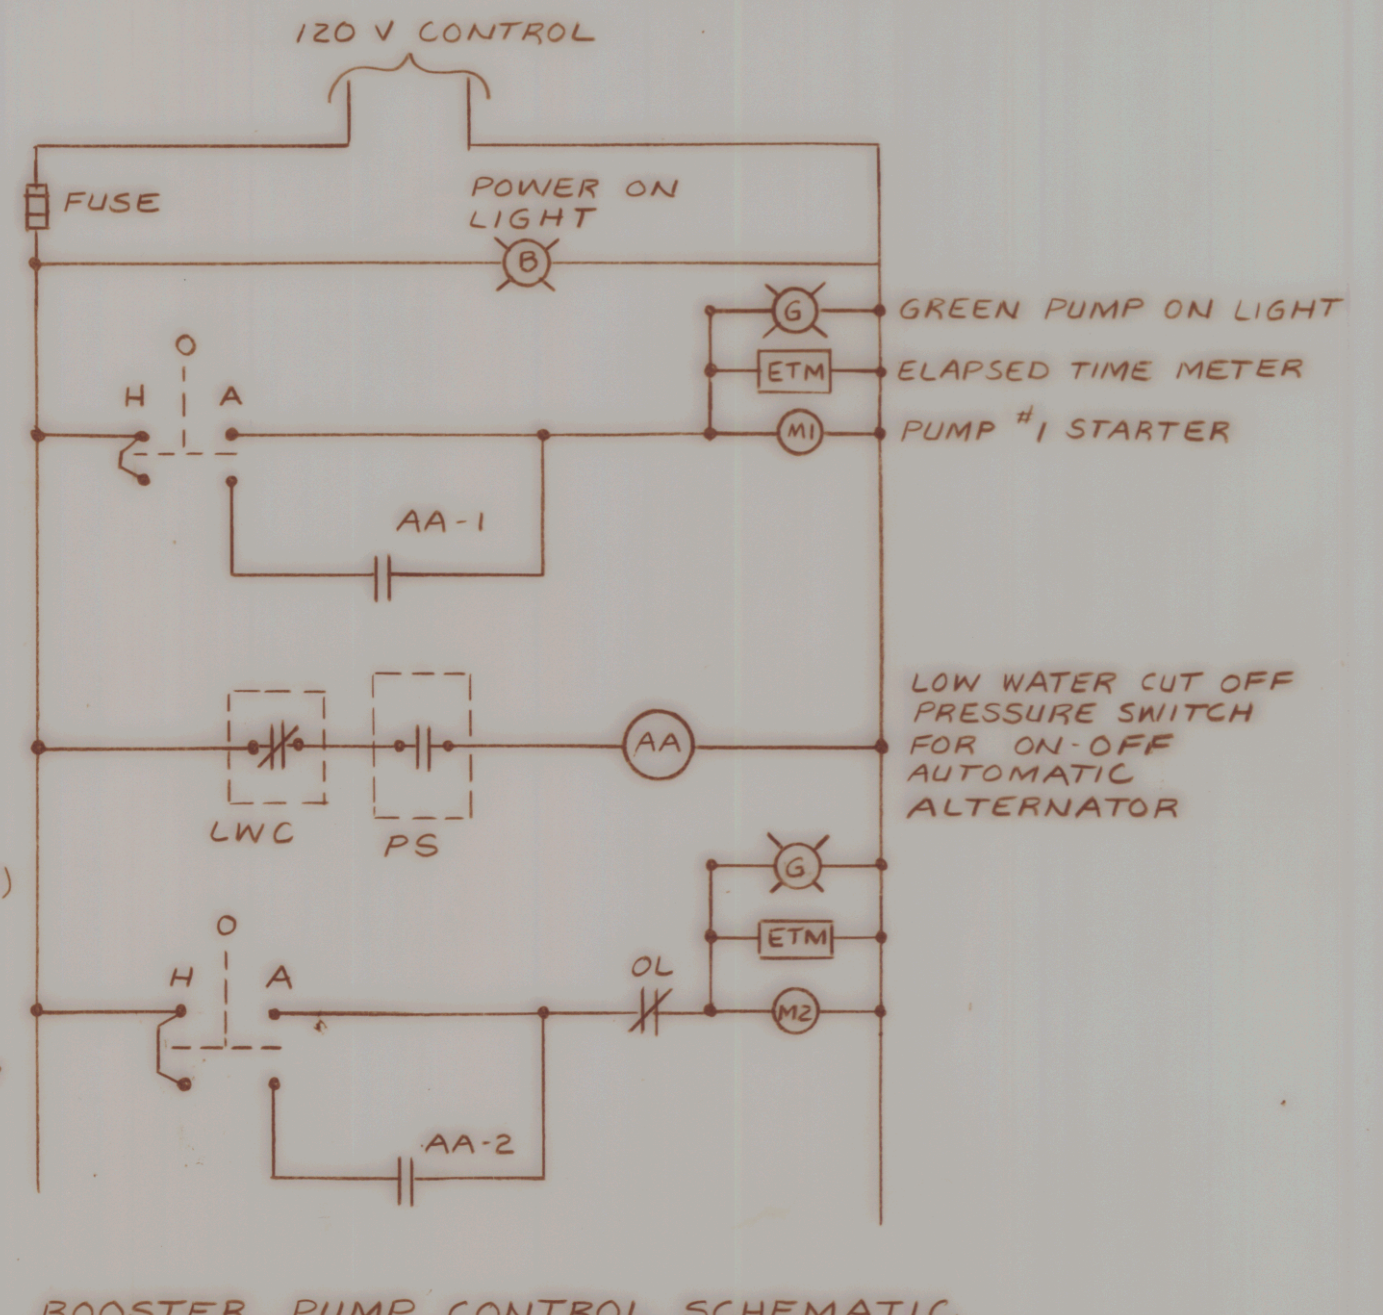 120 V CONTROL
FUSE
POWER ON
LIGHT
B
G
GREEN PUMP ON LIGHT
O
ETM
ELAPSED TIME METER
H A
M1
PUMP #1 STARTER
AA-1
LOW WATER CUT OFF
PRESSURE SWITCH
FOR ON-OFF
AUTOMATIC
ALTERNATOR
AA
LWC
PS
G
)
O
ETM
H A
OL
M2
AA-2
BOOSTER PUMP CONTROL SCHEMATIC